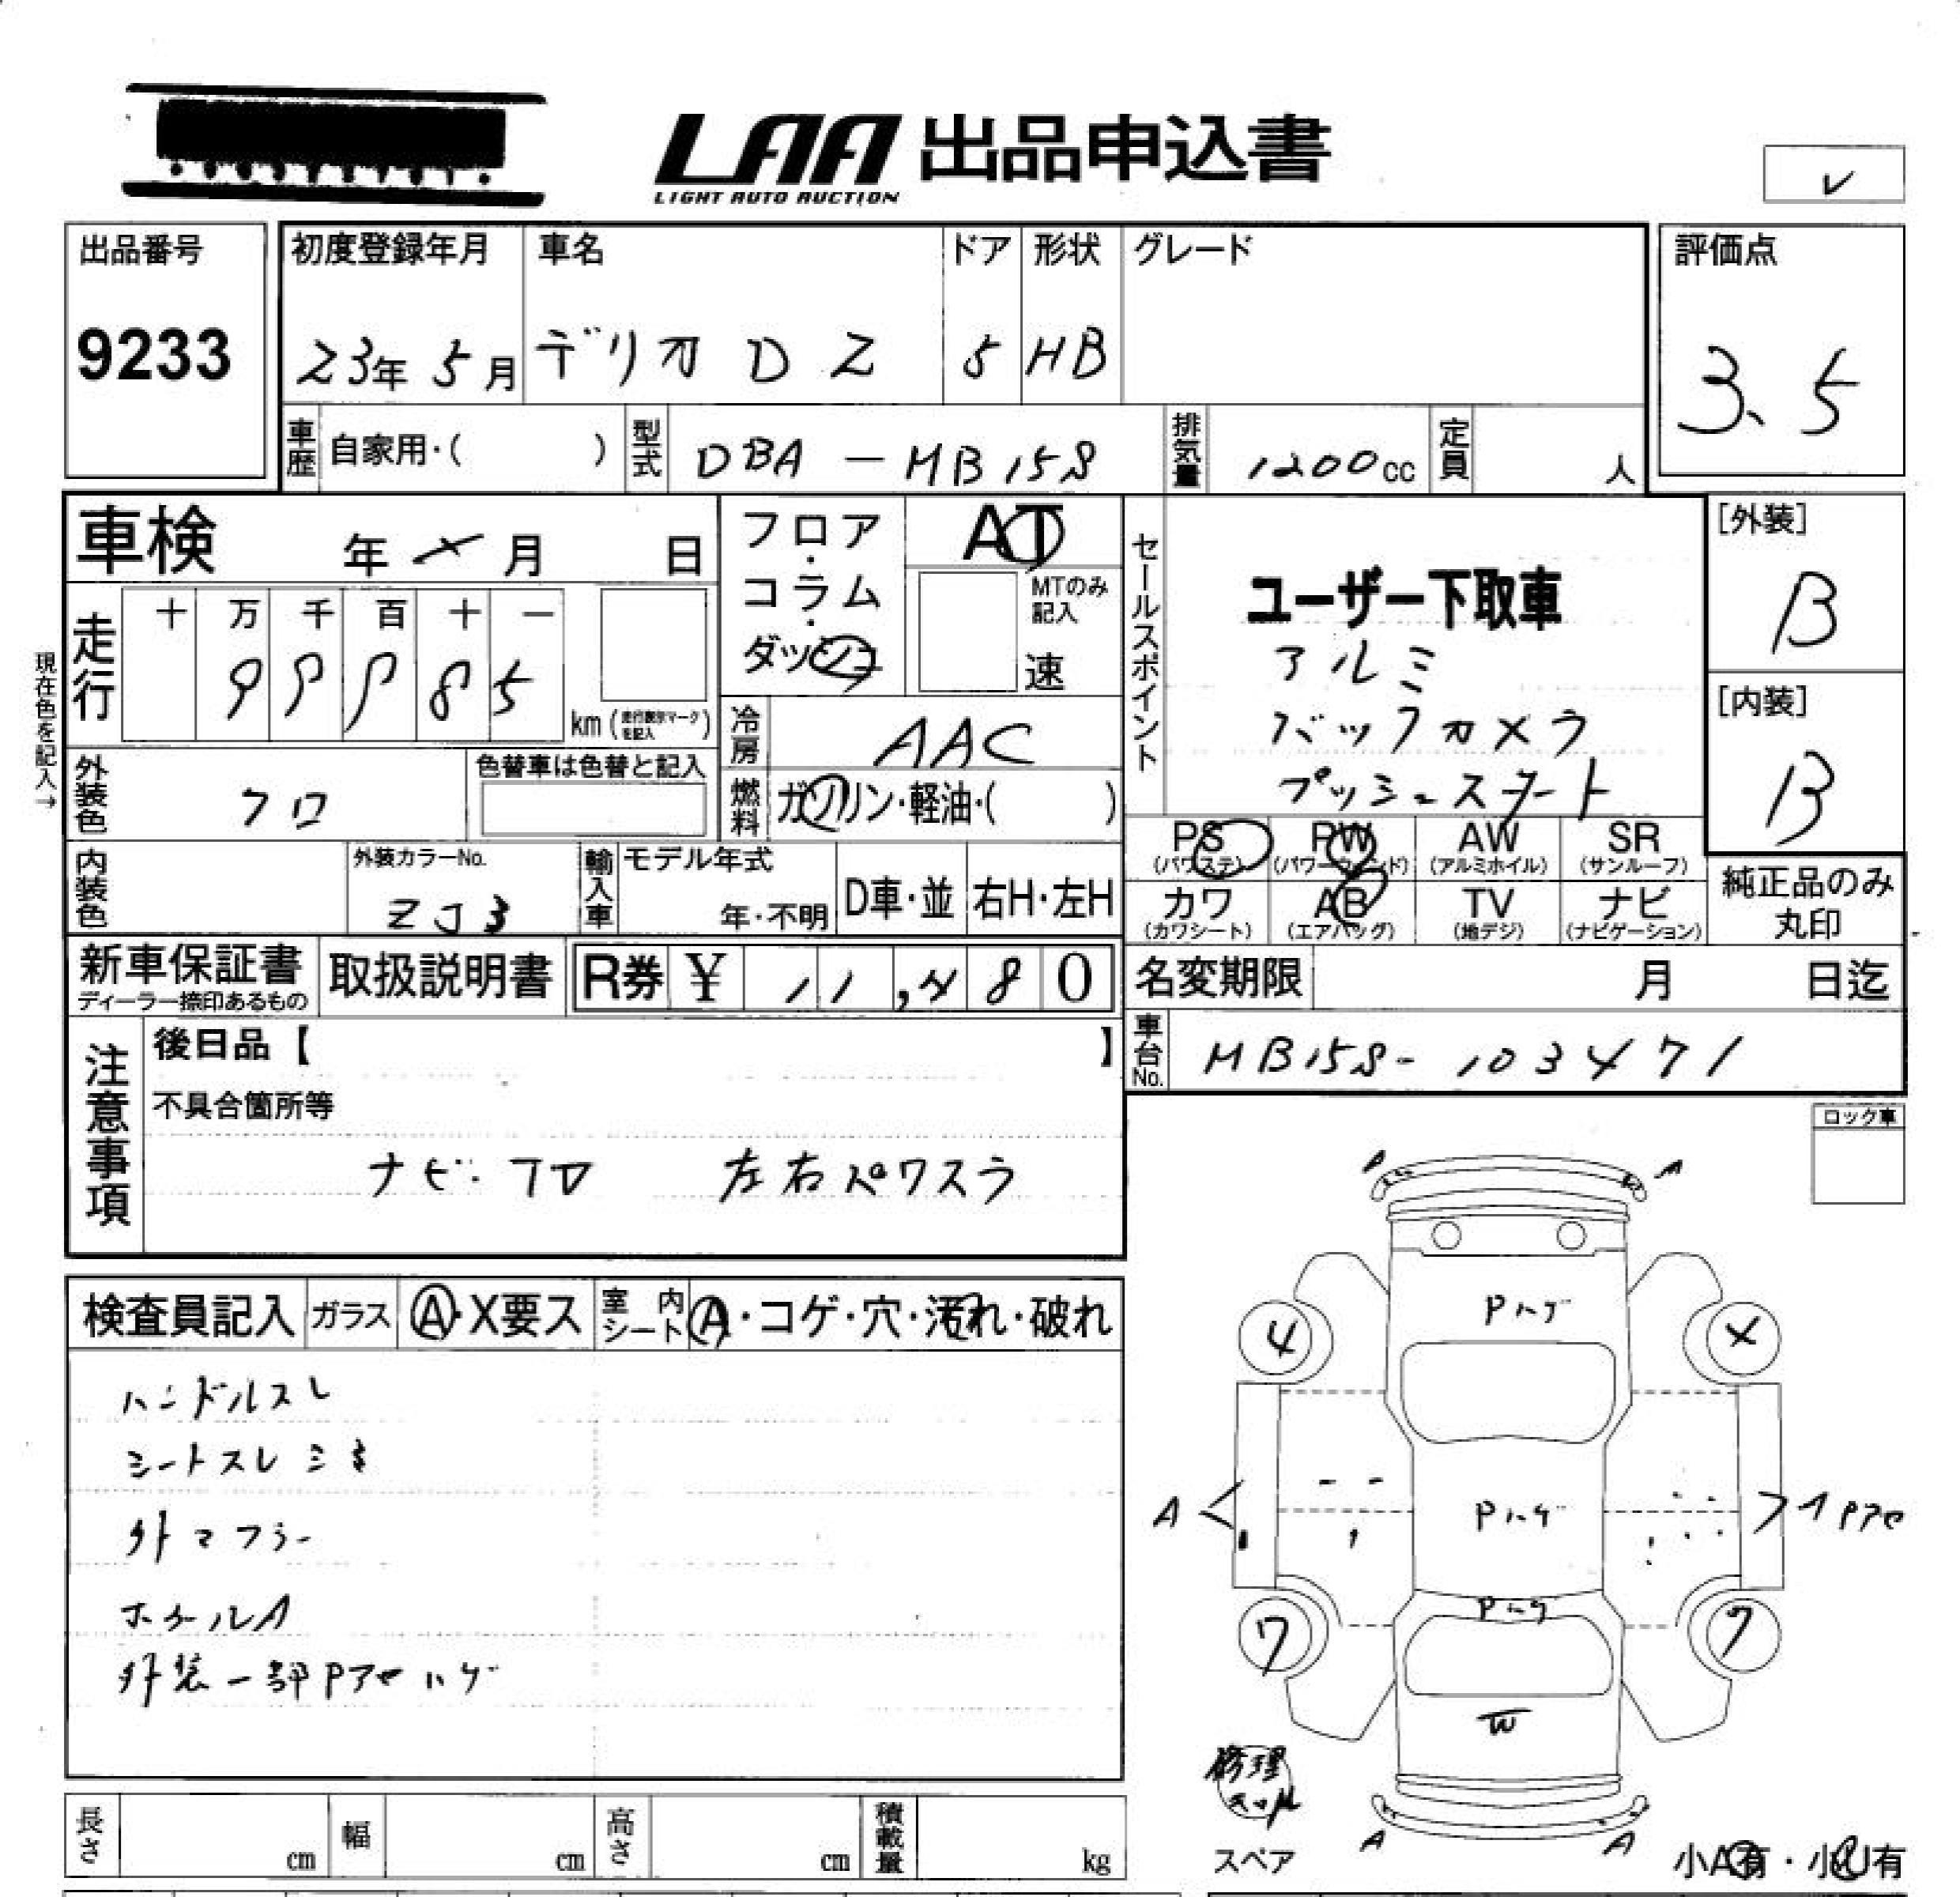 LAA 出品申込書
LIGHT AUTO AUCTION
レ
出品番号 9233
初度登録年月 23年 5月
車名 デリカ D 2
ドア 5
形状 HB
グレード
評価点 3.5
車歴 自家用・( )
型式 DBA-MB15S
排気量 1200cc
定員 人
車検 年 × 月 日
フロア・コラム・ダッシュ
AT
MTのみ記入
速
セールスポイント
ユーザー下取車
アルミ
バックカメラ
プッシュスタート
[外装] B
[内装] B
現在色を記入→
走行 十 万 千 百 十 一
99985 km (走行表示マークを記入)
冷房 AAC
燃料 ガソリン・軽油・( )
外装色 クロ
色替車は色替と記入
内装色
外装カラーNo. ZJ3
輸入車 モデル年式 年・不明
D車・並 右H・左H
PS (パワステ) PW (パワーウィンド) AW (アルミホイル) SR (サンルーフ)
カワ (カワシート) AB (エアバッグ) TV (地デジ) ナビ (ナビゲーション)
純正品のみ丸印
新車保証書 ディーラー捺印あるもの
取扱説明書
R券 ¥ 11,480
名変期限 月 日迄
車台No. MB15S-103471
注意事項
後日品【 】
不具合箇所等
ナビ・TV 左右パワスラ
ロック車
検査員記入 ガラス A・X要ス 室内シート A・コゲ・穴・汚れ・破れ
ハンドルスレ
シートスレシミ
外マフラー
ホイールA
外装一部Pアセハゲ
A A
Pハゲ
4 ×
A Pハゲ Pアセ
Pハゲ
7 7
W
修理
A A
スペア
小A有・小U有
長さ cm 幅 cm 高さ cm 積載量 kg